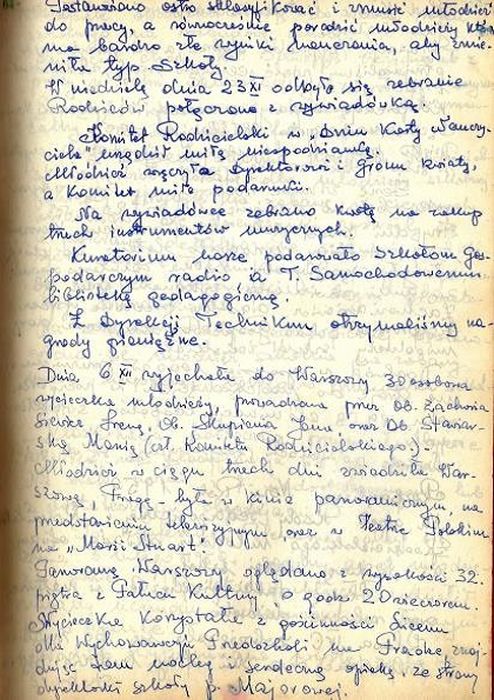 Postanowiono ostro sklasyfikować i zmusić młodzież
do pracy, a równocześnie poradzić młodzieży która
ma bardzo złe wyniki nauczania, aby zmie-
niła typ Szkoły.
W niedzielę dnia 23 XI odbyło się zebranie
Rodziców połączone z wywiadówką.
Komitet Rodzicielski w „Dniu Karty Nauczy-
ciela" urządził miłą niespodziankę.
Młodzież wręczyła Dyrektorowi i Gronu kwiaty,
a Komitet miłe podarunki.
Na wywiadówce zebrano kwotę na zakup
trzech instrumentów muzycznych.
Kuratorium nasze podarowało Szkołom Gos-
podarczym radio a T. Samochodowemu
bibliotekę pedagogiczną.
Z Dyrekcji Technikum otrzymaliśmy na-
grody pieniężne.
Dnia 6 XII wyjechała do Warszawy 30 osobowa
wycieczka młodzieży, prowadzona przez Ob.
Irenę, Ob. Skupienia oraz Ob.
Marię (czł. Komitetu Rodzicielskiego).
Młodzież w ciągu trzech dni zwiedziła War-
szawę, Pragę - była w kinie panoramicznym, na
przedstawieniu telewizyjnym oraz w Teatrze Polskim
na „Marii Stuart".
Panoramę Warszawy oglądano z wysokości 32.
piętra z Pałacu Kultury o godz. 20 wieczorem.
Wycieczka korzystała z gościnności Liceum
dla Wychowawczyń Przedszkoli na Pradze znaj-
dując tam nocleg i serdeczną opiekę ze strony
dyrektorki szkoły p. Majorowej.